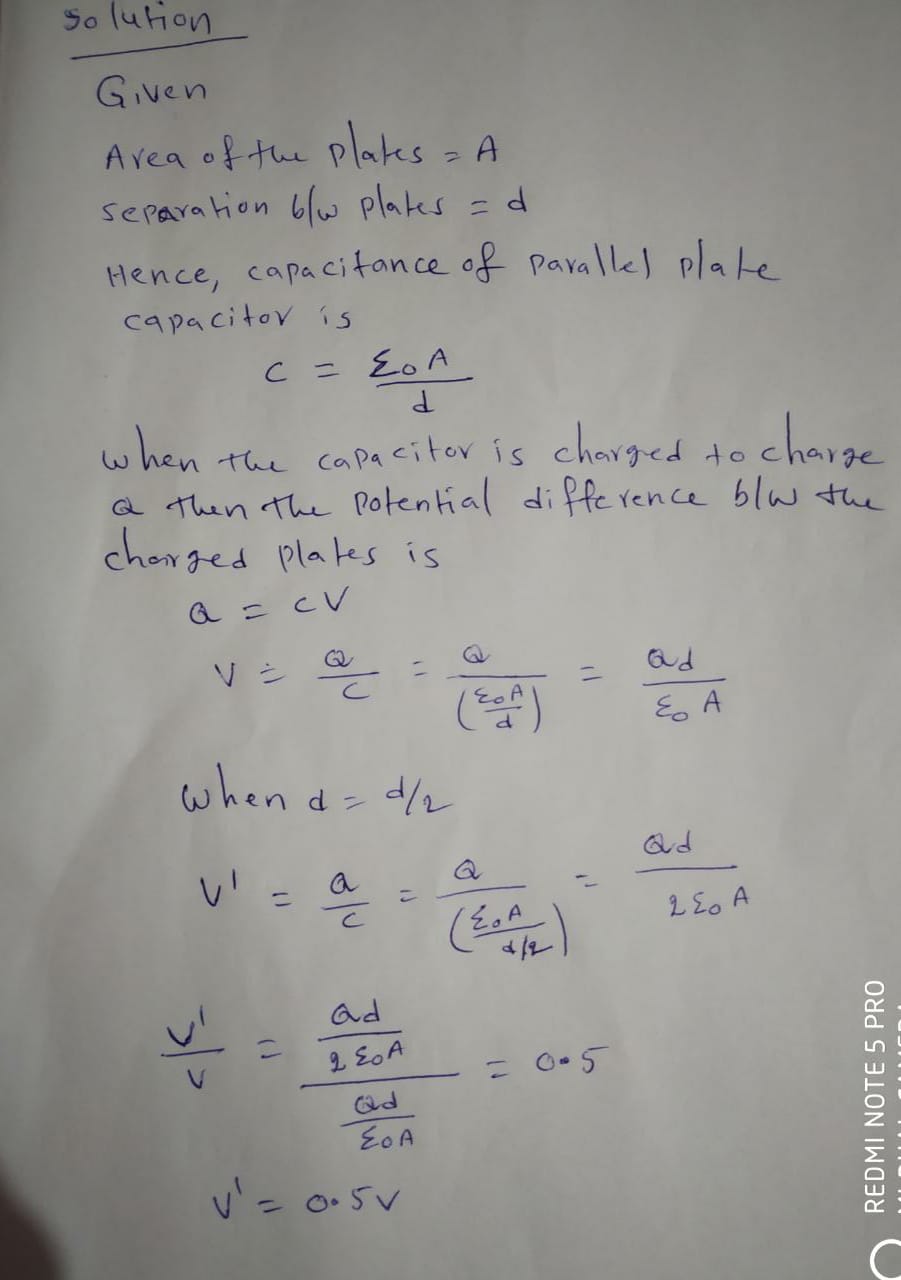 Solution
Given
Area of the plates = A
separation b/w plates = d
Hence, capacitance of parallel plate
capacitor is
C = ε₀A/d
when the capacitor is charged to charge
Q then the potential difference b/w the
charged plates is
Q = CV
V = Q/C = Q/(ε₀A/d) = Qd/ε₀A
when d = d/2
V' = Q/C = Q/(ε₀A/d/2) = Qd/2ε₀A
V'/V = (Qd/2ε₀A)/(Qd/ε₀A) = 0.5
V' = 0.5V
REDMI NOTE 5 PRO